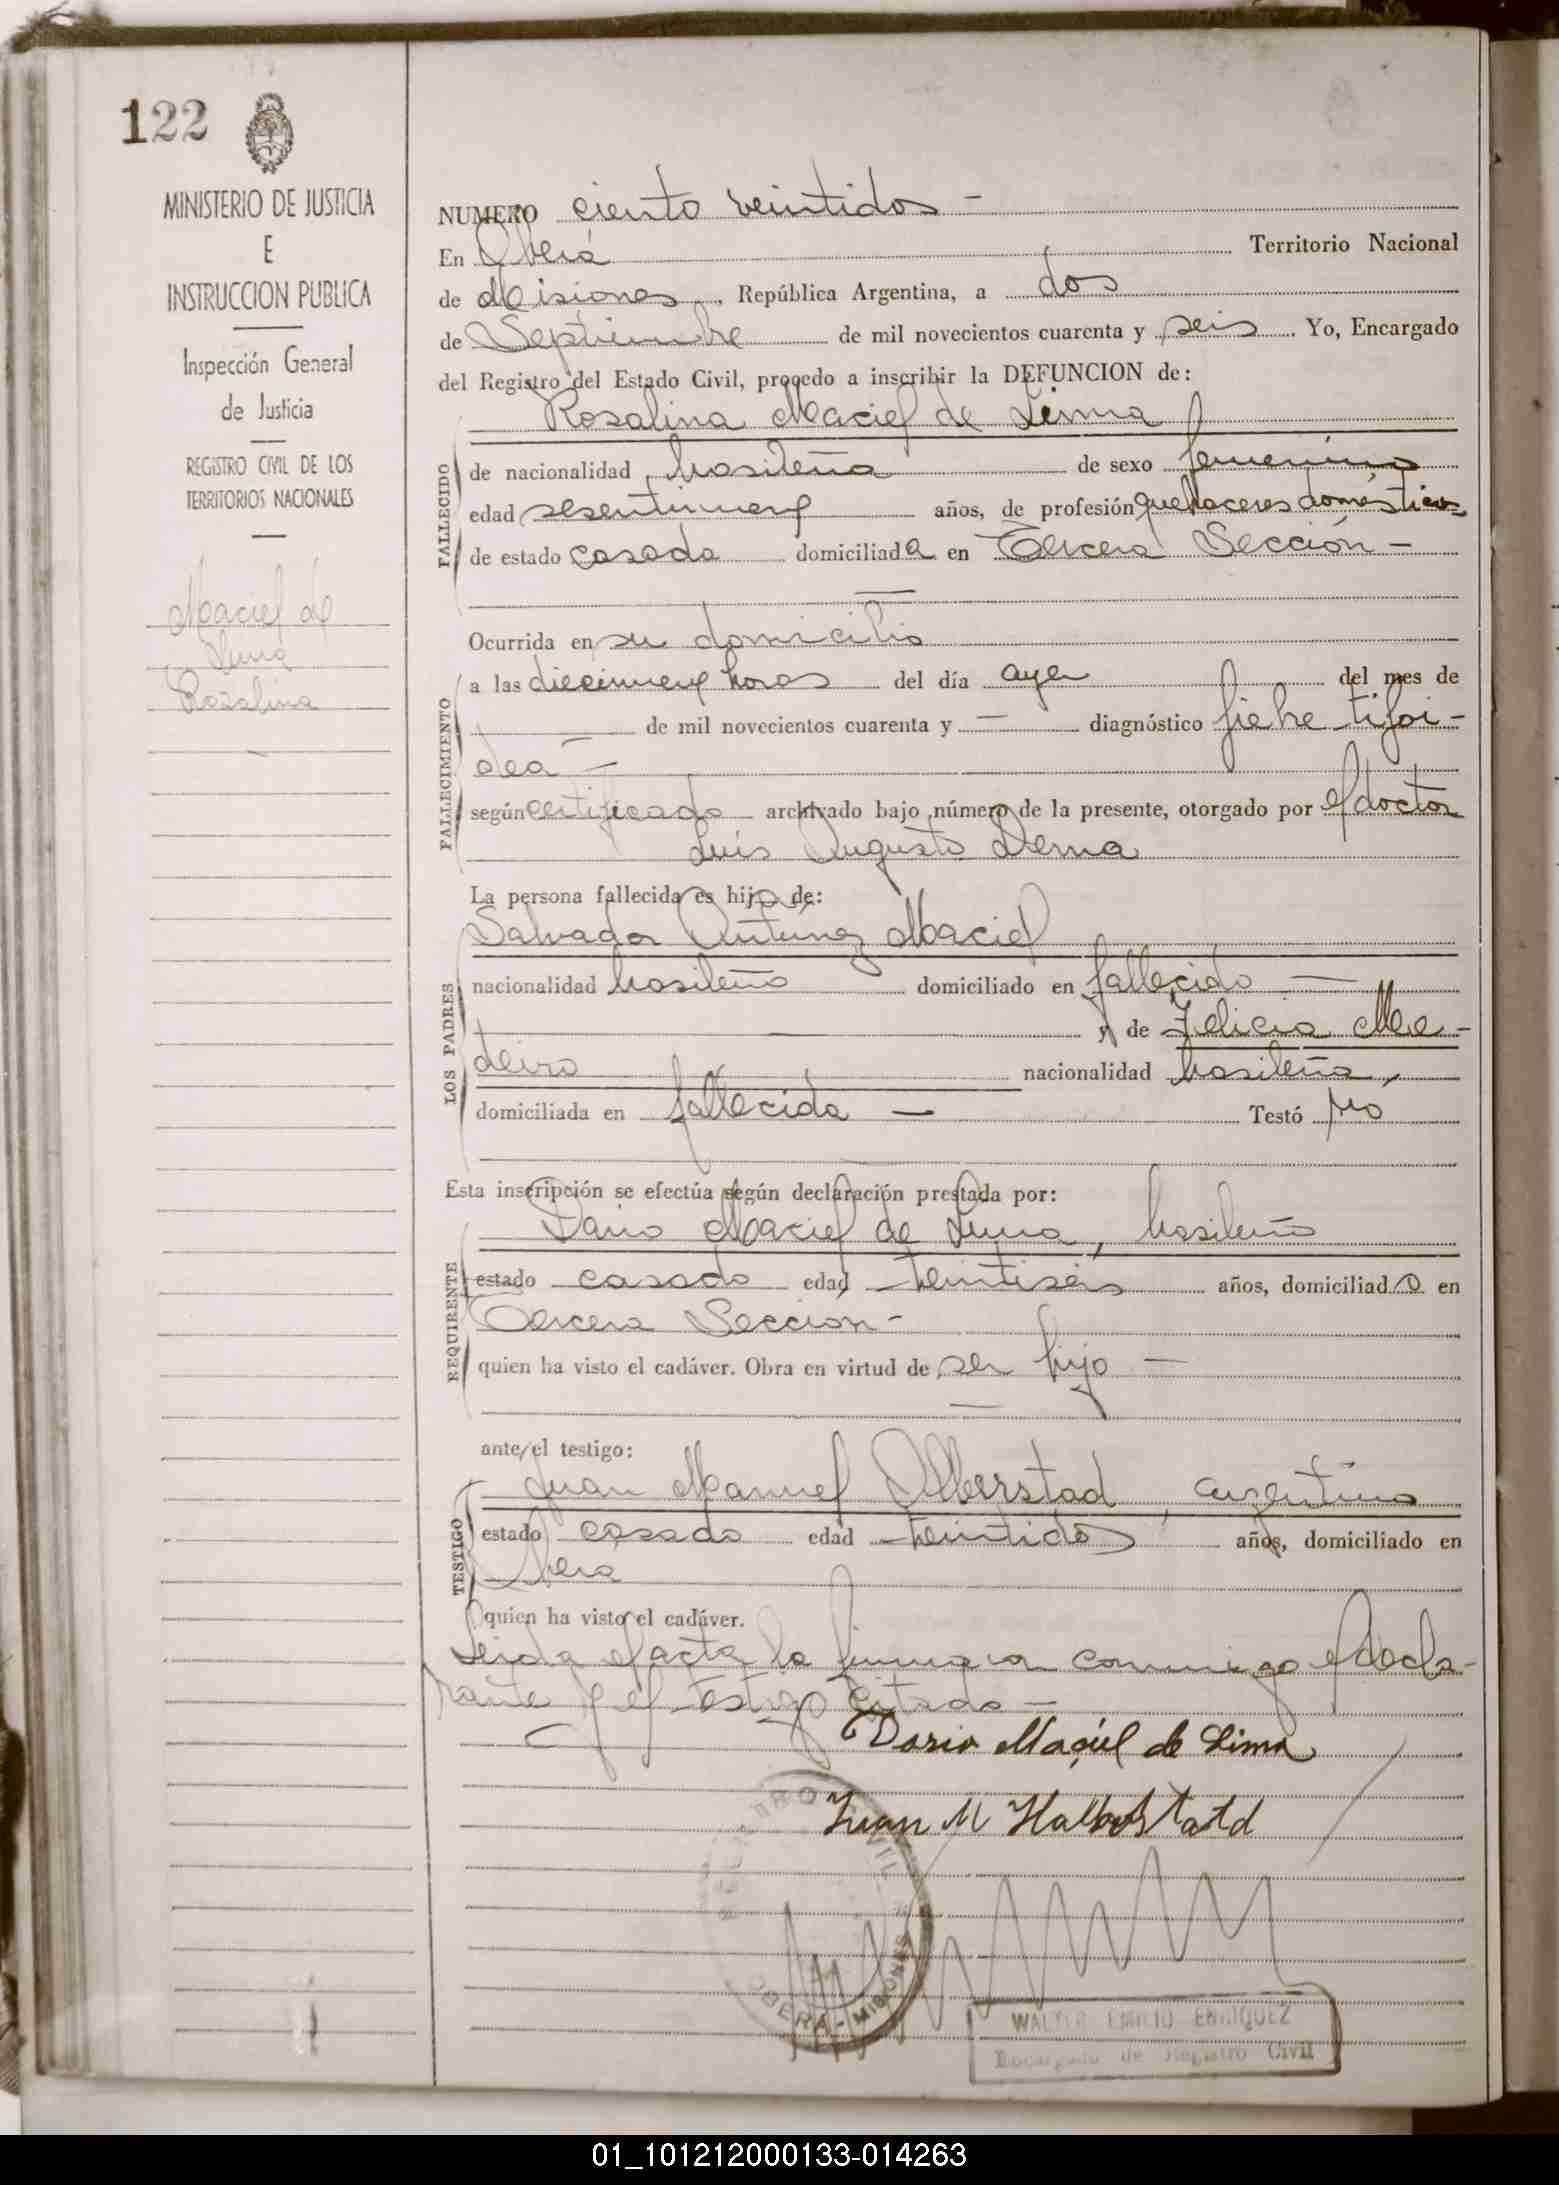 122
MINISTERIO DE JUSTICIA
E
INSTRUCCION PUBLICA
Inspección General
de Justicia
REGISTRO CIVIL DE LOS
TERRITORIOS NACIONALES
Maciel de
Lima
Rosalina
NUMERO ciento veintidos -
En Oberá Territorio Nacional
de Misiones, República Argentina, a dos
de Septiembre de mil novecientos cuarenta y seis. Yo, Encargado
del Registro del Estado Civil, procedo a inscribir la DEFUNCION de:
Rosalina Maciel de Lima
FALLECIDO
de nacionalidad brasileña de sexo femenino
edad sesentinueve años, de profesión quehaceres domésticos
de estado casada domiciliada en Tercera Sección -
FALLECIMIENTO
Ocurrida en su domicilio
a las diecinueve horas del día ayer del mes de
— de mil novecientos cuarenta y — diagnóstico fiebre tifoi-
dea —
según certificado archivado bajo número de la presente, otorgado por el doctor
Luis Augusto Derna
LOS PADRES
La persona fallecida es hija de:
Salvador Antúnez Maciel
nacionalidad brasileño domiciliado en fallecido —
— y de Felicia Me-
deiro nacionalidad brasileña,
domiciliada en fallecida — Testó no
Esta inscripción se efectúa según declaración prestada por:
REQUIRENTE
Dario Maciel de Lima, brasileño
estado casado edad treintiseis años, domiciliado en
Tercera Sección -
quien ha visto el cadáver. Obra en virtud de ser hijo —
ante el testigo:
TESTIGO
Juan Manuel Alberstad, argentino
estado casado edad treintidos años, domiciliado en
Oberá
quien ha visto el cadáver.
Leida el acta la firmaron conmigo el decla-
rante y el testigo citado —
Dario Maciel de Lima
Juan M Halberstatd
REGISTRO CIVIL
OBERA - MISIONES
WALTER EMILIO ENRIQUEZ
Encargado de Registro Civil
01_101212000133-014263